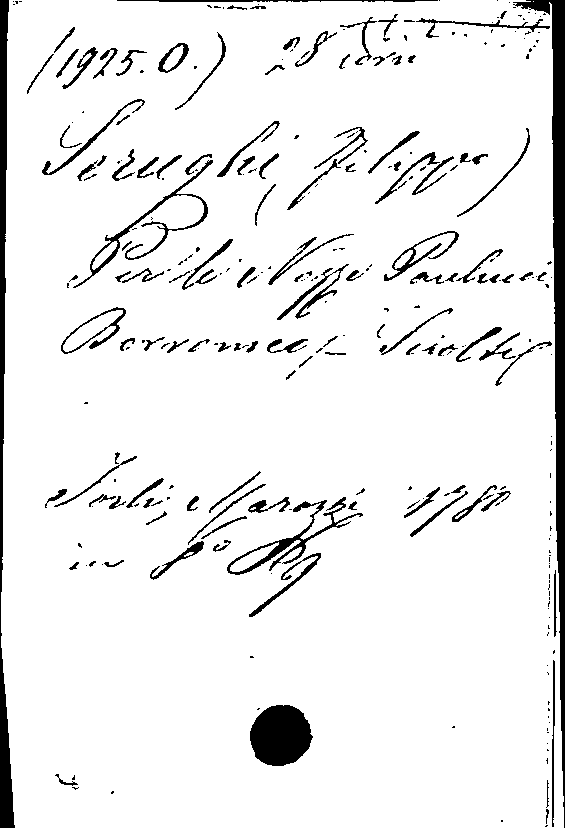 (1925.O.) 28
Serughi (Filippo)
Per le Nozze Paulucci
Borromeo, Sciolti
Forlì, Marozzi 1780
in 8º